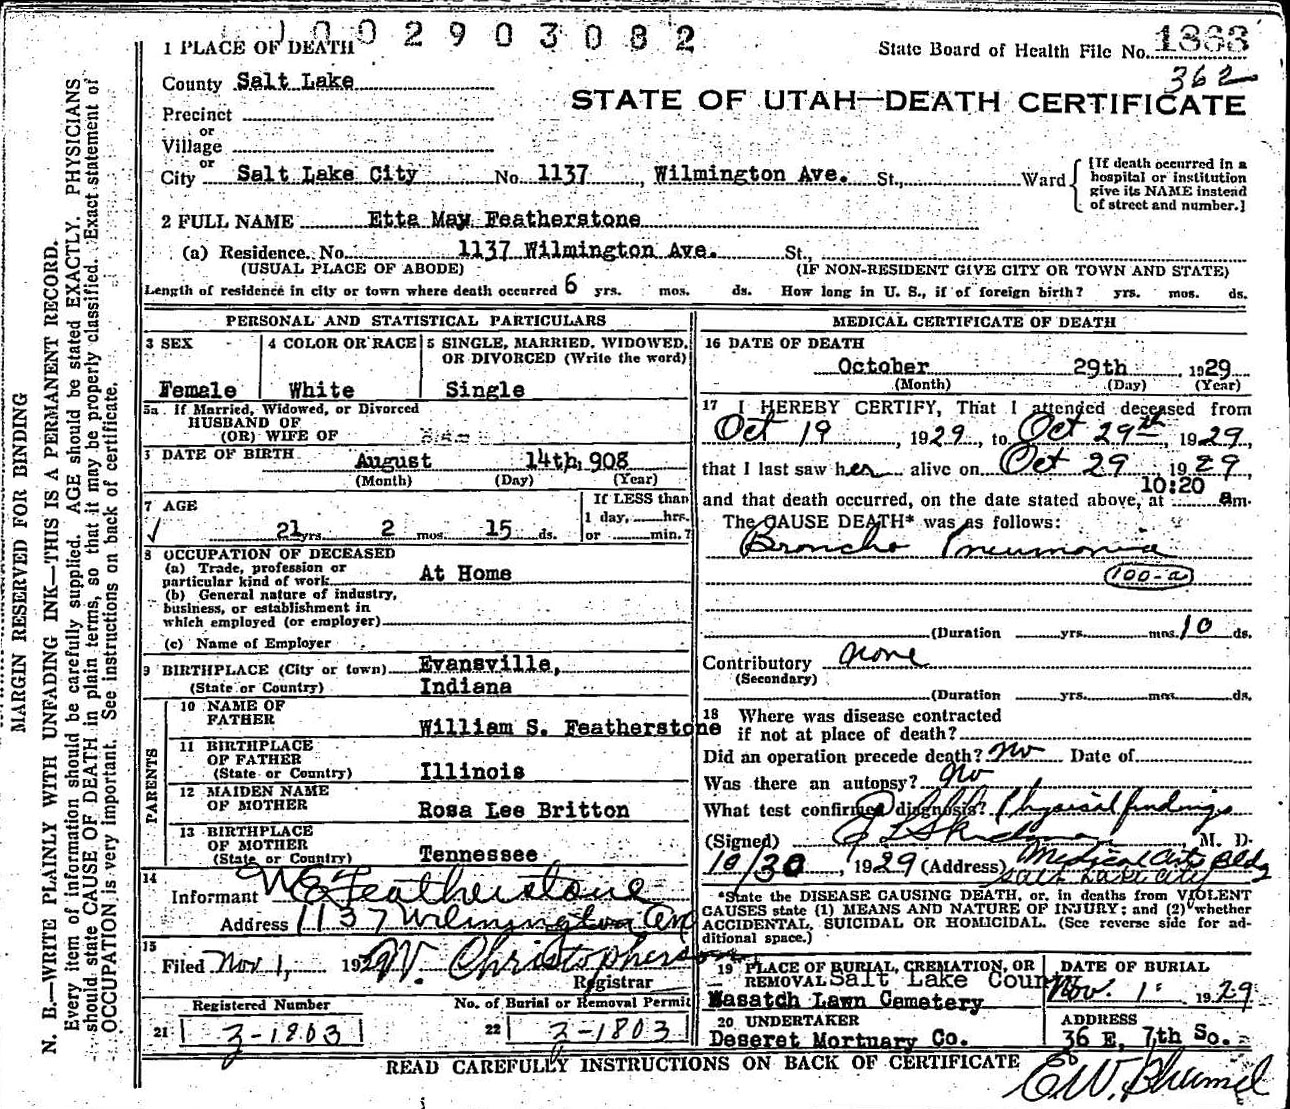 1002903082
1 PLACE OF DEATH
State Board of Health File No. 1863
362
County Salt Lake
STATE OF UTAH—DEATH CERTIFICATE
Precinct
or
Village
or
City Salt Lake City No. 1137, Wilmington Ave. St., Ward
[If death occurred in a
hospital or institution
give its NAME instead
of street and number.]
2 FULL NAME Etta May Featherstone
(a) Residence. No. 1137 Wilmington Ave. St.,
(USUAL PLACE OF ABODE) (IF NON-RESIDENT GIVE CITY OR TOWN AND STATE)
Length of residence in city or town where death occurred 6 yrs. mos. ds. How long in U. S., if of foreign birth? yrs. mos. ds.
PERSONAL AND STATISTICAL PARTICULARS
3 SEX
Female
4 COLOR OR RACE
White
5 SINGLE, MARRIED, WIDOWED,
OR DIVORCED (Write the word)
Single
5a If Married, Widowed, or Divorced
HUSBAND OF
(OR) WIFE OF
DATE OF BIRTH
August 14th, 908
(Month) (Day) (Year)
7 AGE
21 yrs. 2 mos. 15 ds.
If LESS than
1 day, hrs.
or min.?
8 OCCUPATION OF DECEASED
(a) Trade, profession or
particular kind of work At Home
(b) General nature of industry,
business, or establishment in
which employed (or employer)
(c) Name of Employer
9 BIRTHPLACE (City or town) Evansville,
(State or Country) Indiana
PARENTS
10 NAME OF
FATHER William S. Featherstone
11 BIRTHPLACE
OF FATHER
(State or Country) Illinois
12 MAIDEN NAME
OF MOTHER Rosa Lee Britton
13 BIRTHPLACE
OF MOTHER
(State or Country) Tennessee
14
Informant W E Featherstone
Address 1137 Wilmington Ave
15
Filed Nov 1, 1929 W. Christopherson
Registrar
Registered Number
21 3-1803
No. of Burial or Removal Permit
22 3-1803
MEDICAL CERTIFICATE OF DEATH
16 DATE OF DEATH
October 29th, 1929
(Month) (Day) (Year)
17 I HEREBY CERTIFY, That I attended deceased from
Oct 19, 1929, to Oct 29th, 1929,
that I last saw her alive on Oct 29, 1929,
and that death occurred, on the date stated above, at 10:20 am.
The CAUSE DEATH* was as follows:
Broncho Pneumonia
100-a
(Duration yrs. mos. 10 ds.
Contributory none
(Secondary)
(Duration yrs. mos. ds.
18 Where was disease contracted
if not at place of death?
Did an operation precede death? no Date of
Was there an autopsy? no
What test confirmed diagnosis? Physical findings
(Signed) M. D.
10/30, 1929 (Address) Medical Arts Bldg
Salt Lake City
*State the DISEASE CAUSING DEATH, or, in deaths from VIOLENT
CAUSES state (1) MEANS AND NATURE OF INJURY; and (2) whether
ACCIDENTAL, SUICIDAL OR HOMICIDAL. (See reverse side for ad-
ditional space.)
19 PLACE OF BURIAL, CREMATION, OR
REMOVAL Salt Lake County
Wasatch Lawn Cemetery
DATE OF BURIAL
Nov. 1 1929
20 UNDERTAKER
Deseret Mortuary Co.
ADDRESS
36 E, 7th So.
READ CAREFULLY INSTRUCTIONS ON BACK OF CERTIFICATE
MARGIN RESERVED FOR BINDING
N. B.—WRITE PLAINLY WITH UNFADING INK—THIS IS A PERMANENT RECORD.
Every item of information should be carefully supplied. AGE should be stated EXACTLY. PHYSICIANS
should state CAUSE OF DEATH in plain terms, so that it may be properly classified. Exact statement of
OCCUPATION is very important. See instructions on back of certificate.